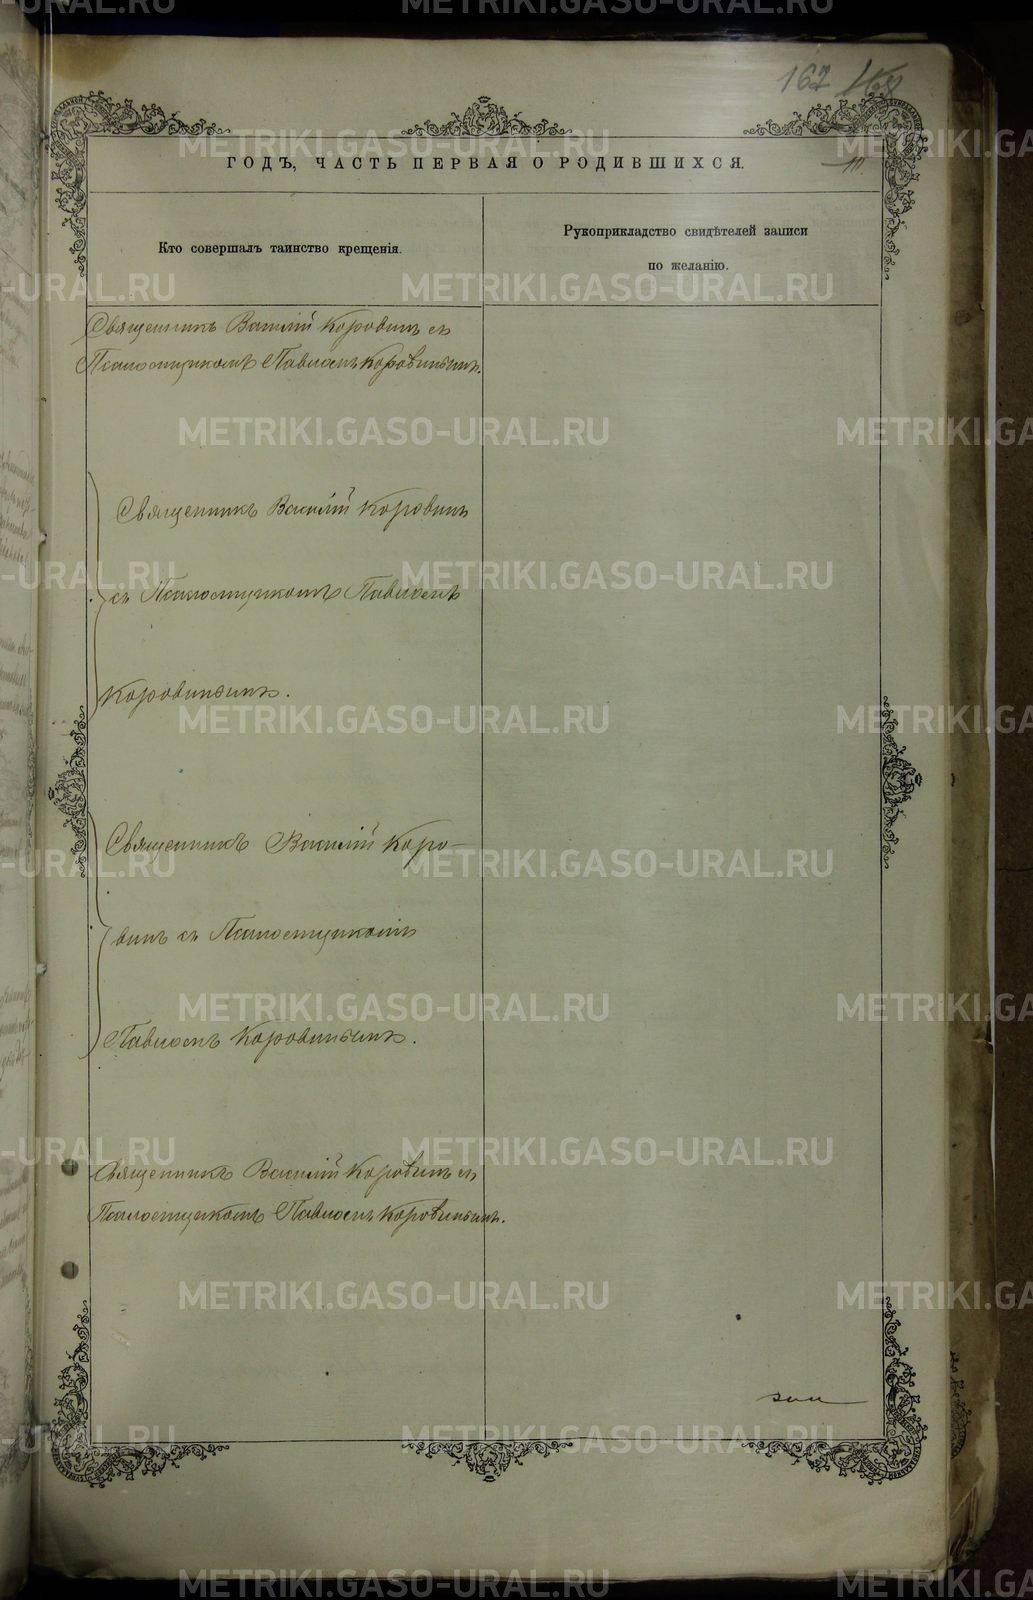 167 168
10.
ГОДЪ, ЧАСТЬ ПЕРВАЯ О РОДИВШИХСЯ.
Кто совершалъ таинство крещенія.
Рукоприкладство свидѣтелей записи
по желанію.
Священникъ Василій Коровинъ съ
Псаломщикомъ Павломъ Коровинымъ.
Священникъ Василій Коровинъ
съ Псаломщикомъ Павломъ
Коровинымъ.
Священникъ Василій Коро-
винъ съ Псаломщикомъ
Павломъ Коровинымъ.
Священникъ Василій Коровинъ съ
Псаломщикомъ Павломъ Коровинымъ.
METRIKI.GASO-URAL.RU